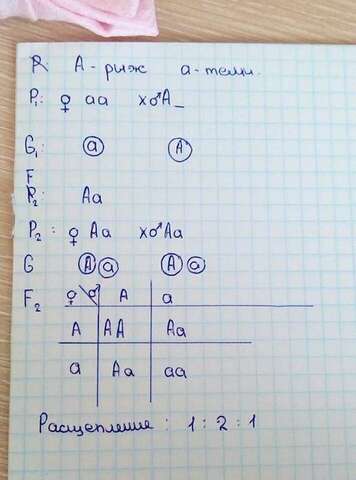 А - риж а - темн.
P₁: ♀ аа х♂А_
G₁: а А
F
P₂ Аа
P₂: ♀ Аа х♂Аа
G А а А а
F₂ ♀ ♂ А а
А АА Аа
а Аа аа
Расщепление: 1 : 2 : 1